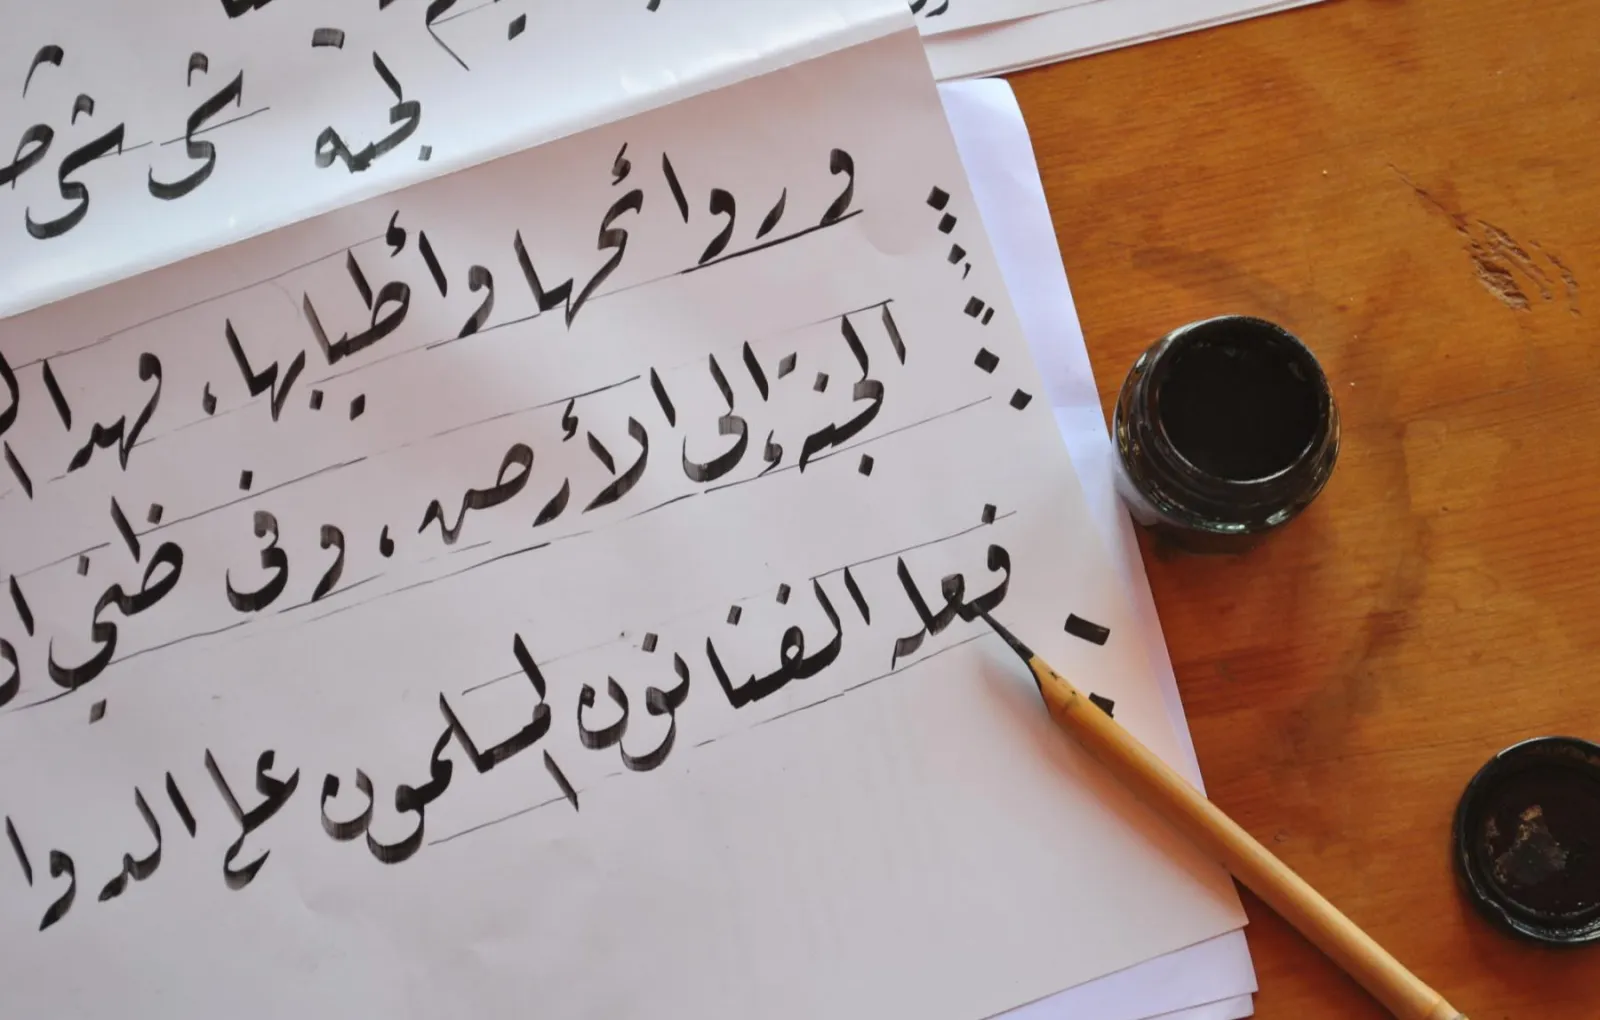 لجنه شى شى
وروائحها وأطيابها، فهذا
الجنة إلى الأرض، وفى ظني
فعله الفنانون المسلمون على الدوا